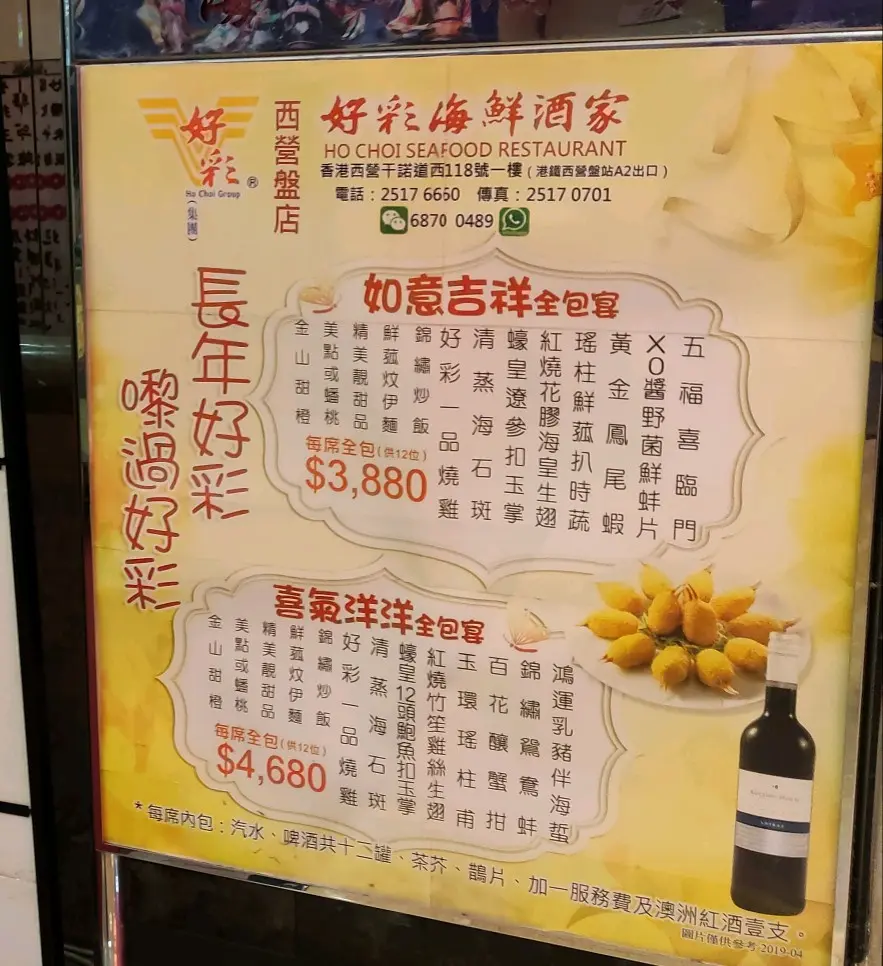 好彩
®
Ho Choi Group
(集團)
西營盤店
好彩海鮮酒家
HO CHOI SEAFOOD RESTAURANT
香港西營干諾道西118號一樓(港鐵西營盤站A2出口)
電話:2517 6660 傳真:2517 0701
6870 0489
長年好彩
嚟過好彩
如意吉祥全包宴
五福喜臨門
XO醬野菌鮮蚌片
黃金鳳尾蝦
瑤柱鮮菰扒時蔬
紅燒花膠海皇生翅
蠔皇遼參扣玉掌
清蒸海石斑
好彩一品燒雞
錦繡炒飯
鮮菰炆伊麵
精美靚甜品
美點或蟠桃
金山甜橙
每席全包(供12位)
$3,880
喜氣洋洋全包宴
鴻運乳豬伴海蜇
錦繡鴛鴦蚌
百花釀蟹拑
玉環瑤柱甫
紅燒竹笙雞絲生翅
蠔皇12頭鮑魚扣玉掌
清蒸海石斑
好彩一品燒雞
錦繡炒飯
鮮菰炆伊麵
精美靚甜品
美點或蟠桃
金山甜橙
每席全包(供12位)
$4,680
*每席內包:汽水、啤酒共十二罐、茶芥、鵲片、加一服務費及澳洲紅酒壹支。
圖片僅供參考 2019-04